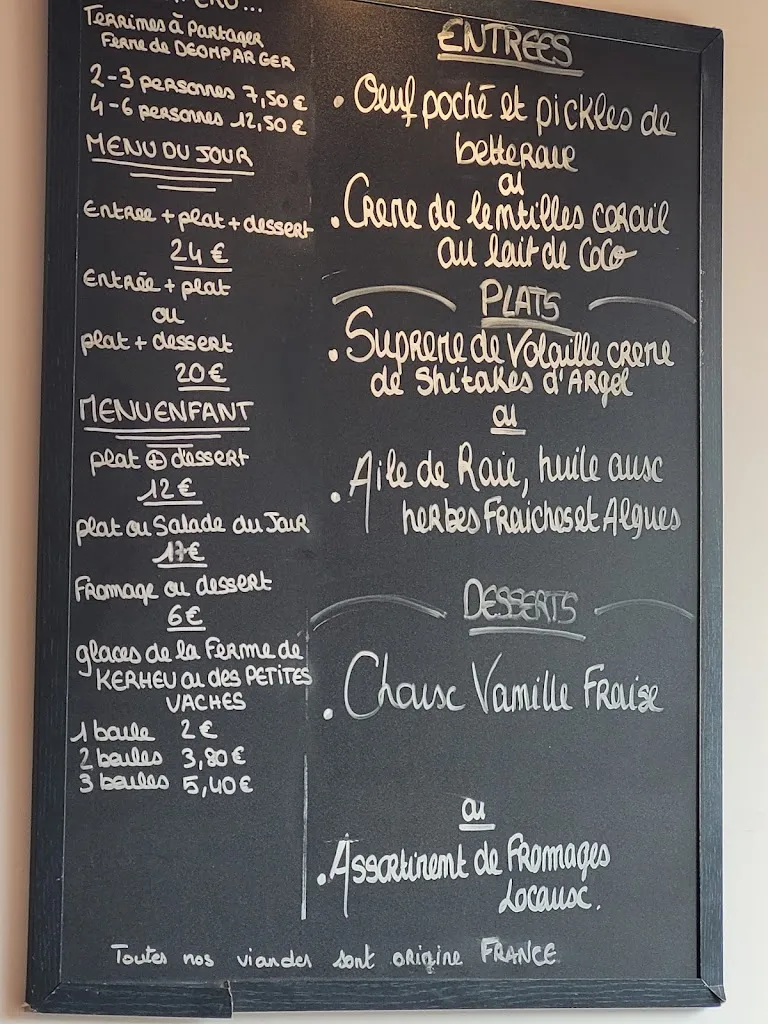 Terrines à Partager
Ferme de DEOMPARGER
2-3 personnes 7,50 €
4-6 personnes 12,50 €
MENU DU JOUR
Entree + plat + dessert
24 €
Entrée + plat
ou
plat + dessert
20 €
MENU ENFANT
plat + dessert
12 €
plat ou Salade du Jour
17 €
Fromage ou dessert
6 €
glaces de la Ferme de
KERHEU ou des PETITES
VACHES
1 boule 2 €
2 boules 3,80 €
3 boules 5,40 €
ENTREES
• Oeuf poché et pickles de
betterave
ou
• Creme de lentilles corail
au lait de CoCo
PLATS
• Supreme de Volaille creme
de Shitakés d'Argol
ou
• Aile de Raie, huile aux
herbes Fraiches et Algues
DESSERTS
• Choux Vanille Fraise
ou
• Assortiment de Fromages
Locaux.
Toutes nos viandes sont origine FRANCE